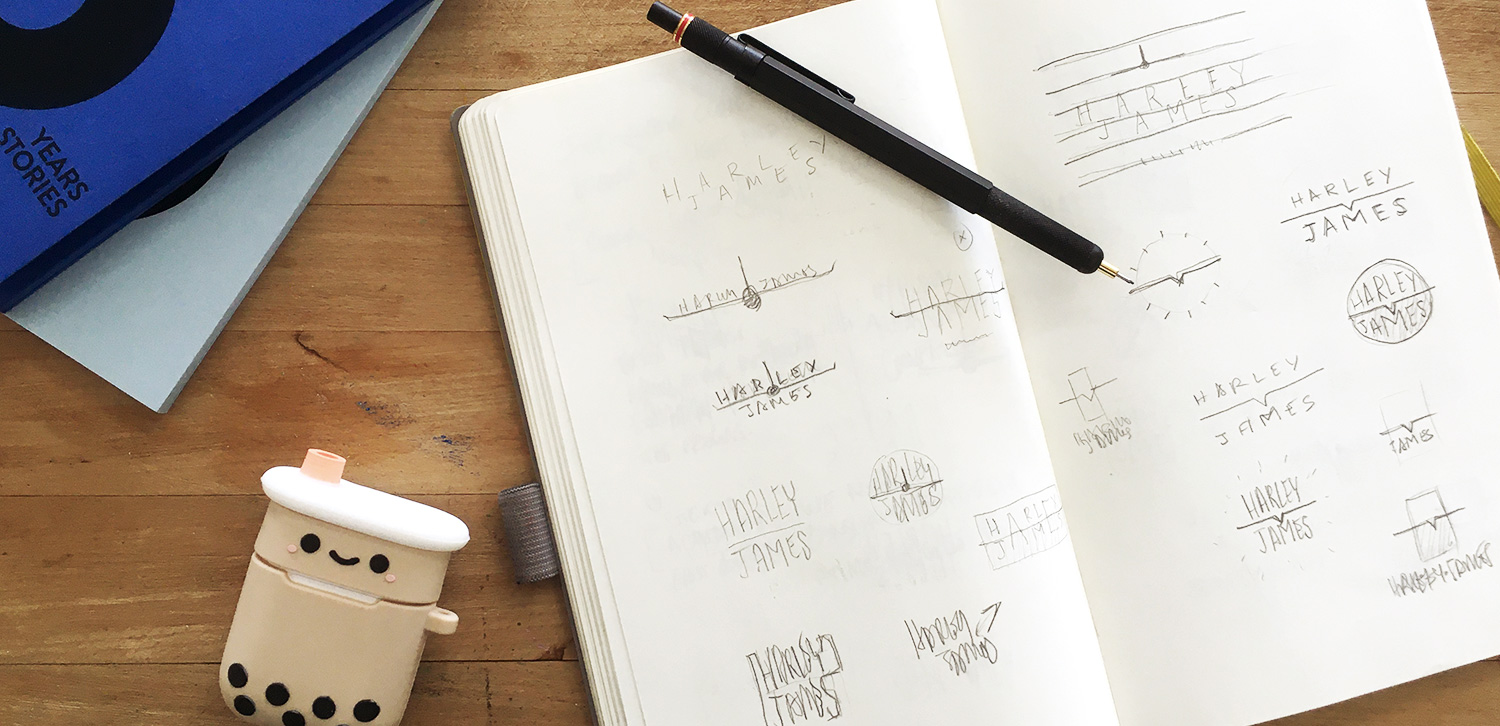 YEARS
STORIES
HARLEY
JAMES
HARLEY JAMES
HARLEY
JAMES
HARLEY
JAMES
HARLEY
JAMES
HARLEY
JAMES
HARLEY
JAMES
HARLEY
JAMES
HARLEY
JAMES
HARLEY
JAMES
HARLEY
JAMES
HARLEY
JAMES
HARLEY
JAMES
JAMES
HARLEY
JAMES
HARLEY·JAMES